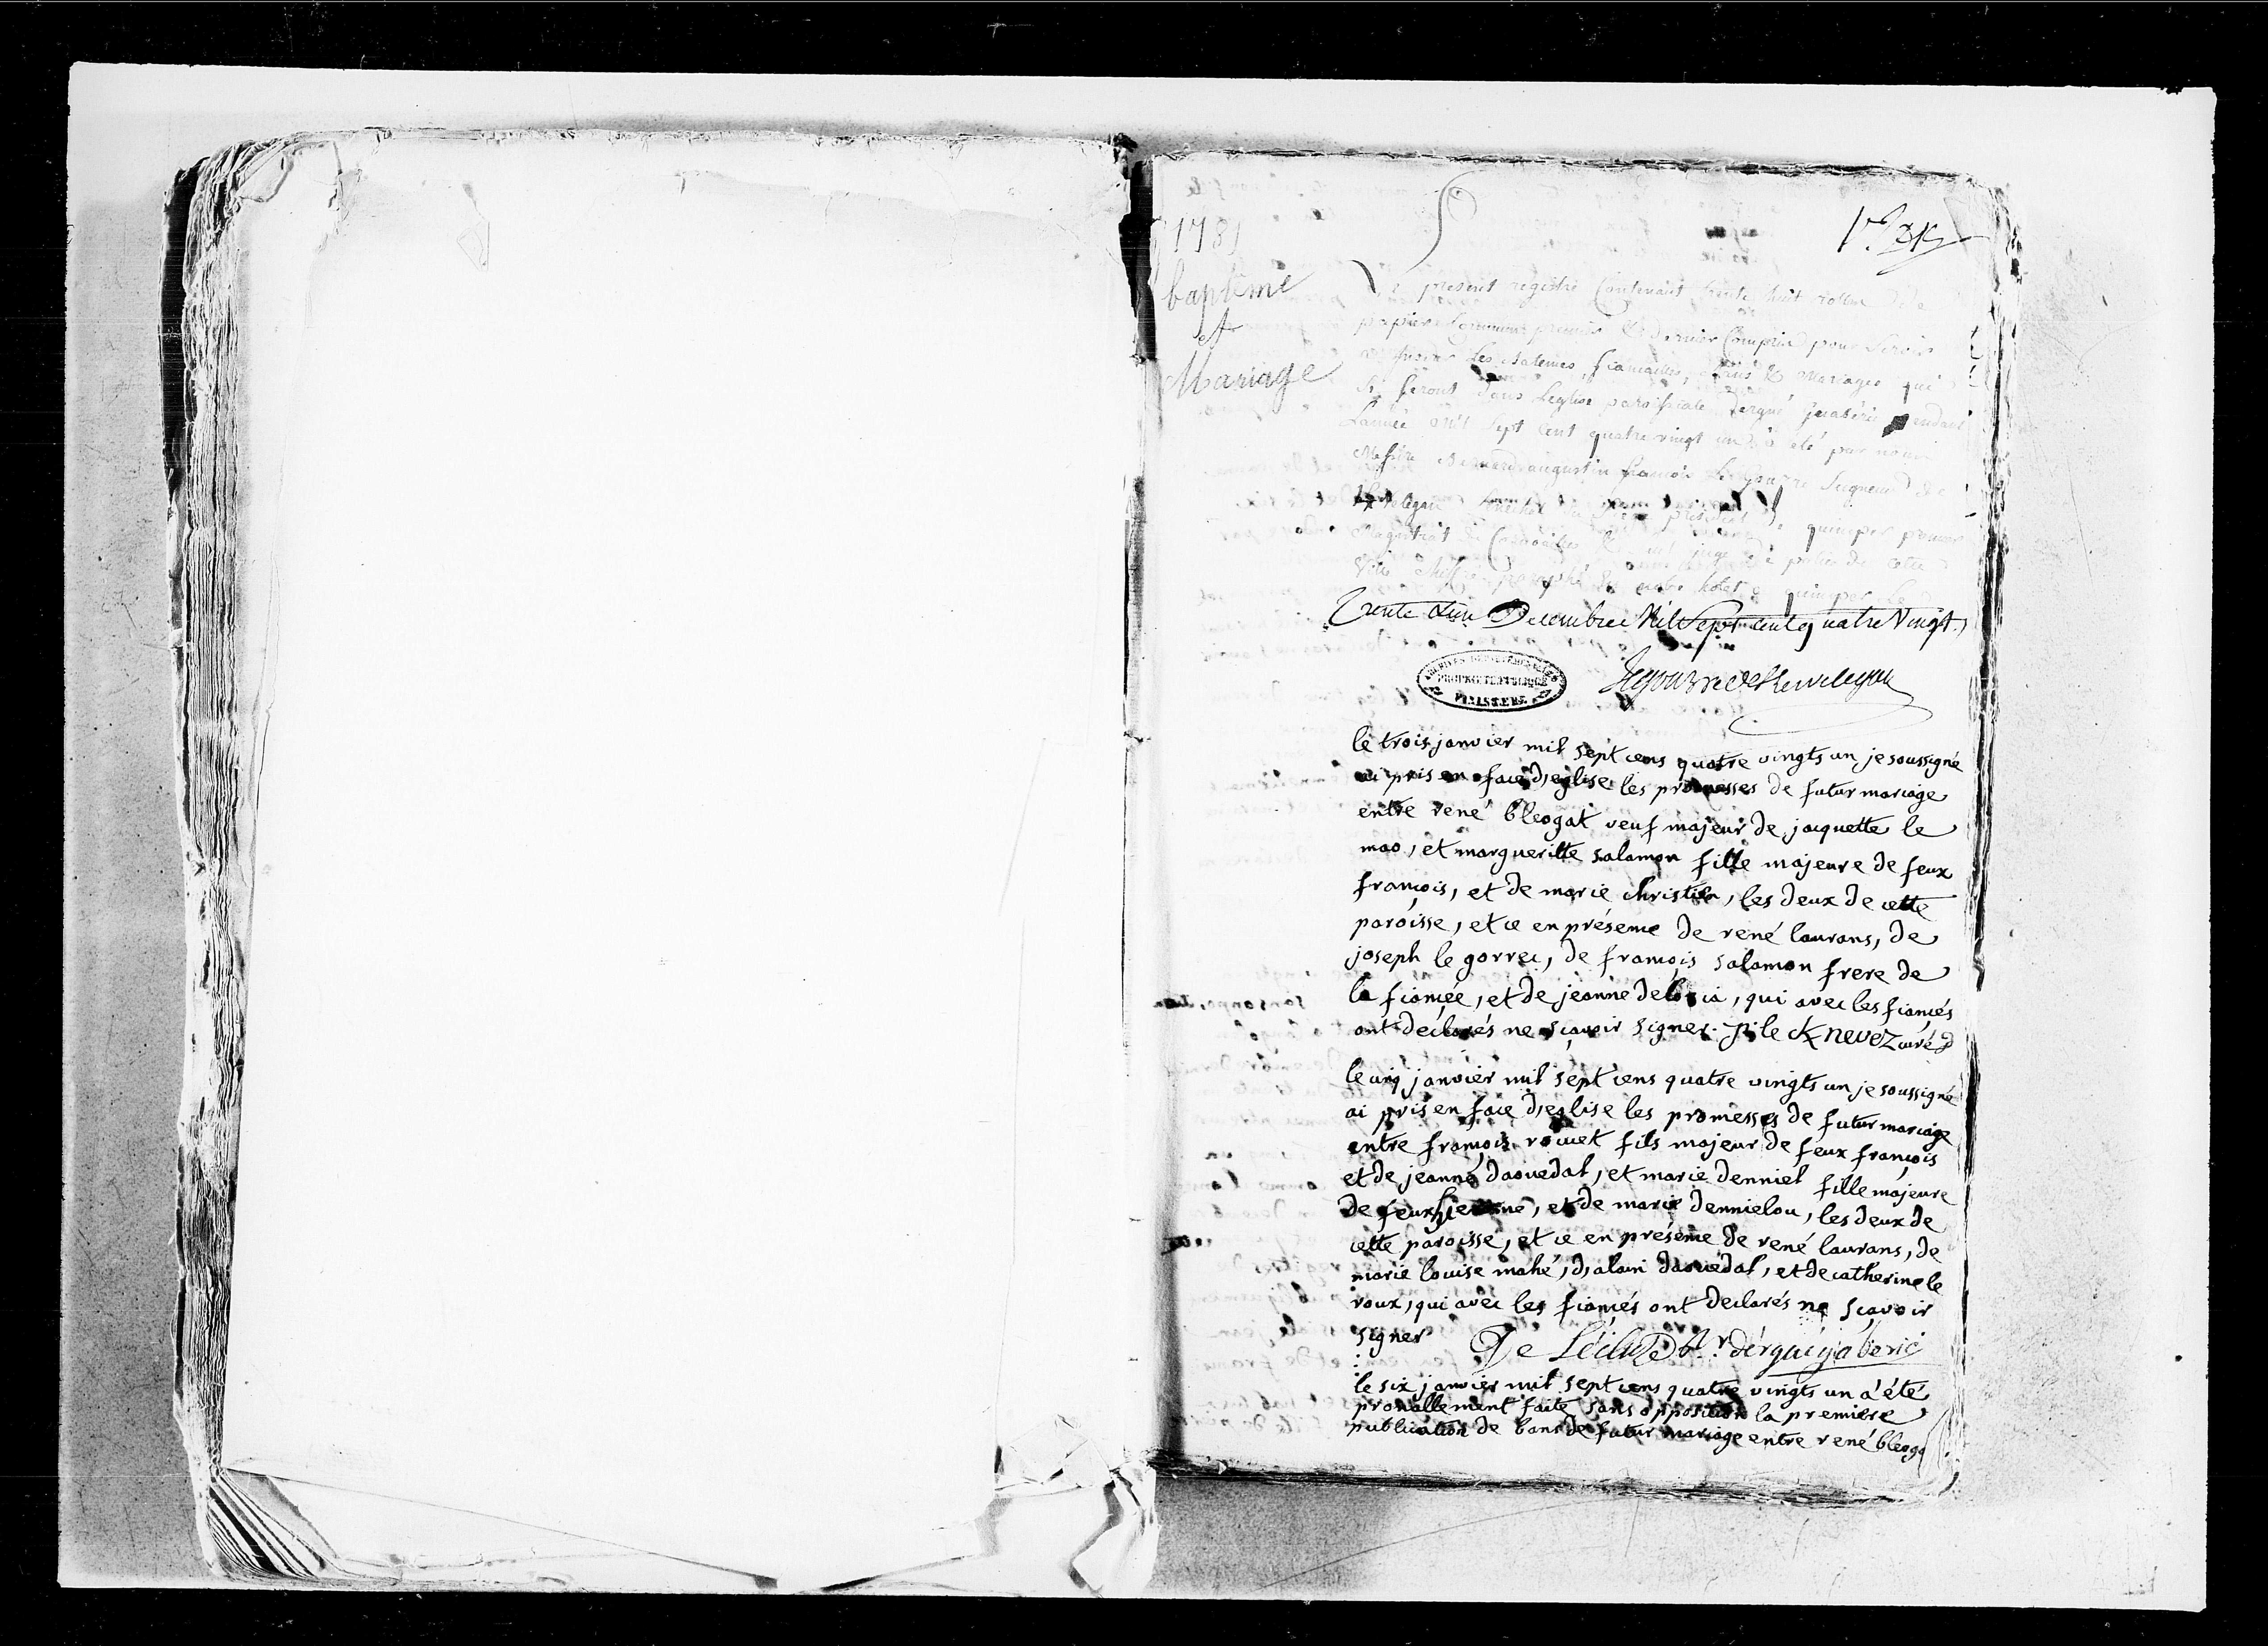 1781
baptême
et
Mariage
Le present registre Contenant trente huit rolles de
papier Commun premier & dernier Compris pour Servir
a Inserer Les Batemes, fiancailles, & Mariages qui
Se feront dans Leglise paroissiale dergué gaberic pendant
Lannée mil Sept Cent quatre vingt un a été par nous
Messire Bernard augustin francois Legouvre Seigneur de
president quimper premier
Magistrat de Cornouailles juge de police de cette
Ville Chiffré notre hotel a quimper le
Trente & un Decembre Mil Sept cent quatre Vingt.
ARCHIVES DEPARTEMENTALES
PROPRIETE PUBLIQUE
FINISTERE
le trois janvier mil sept cens quatre vingts un je soussigné
ai pris en face d'eglise les promesses de futur mariage
entre rené bleogat veuf majeur de jacquette le
mao, et margueritte salamon fille majeure de feux
françois, et de marie christien, les deux de cette
paroisse, et ce en présence de rené laurans, de
joseph le gorrec, de françois salamon frere de
la fiançée, et de jeanne, qui avec les fiançés
ont declarés ne sçavoir signer. j: le Knevez curé
le cinq janvier mil sept cens quatre vingts un je soussigné
ai pris en face d'eglise les promesses de futur mariage
entre françois rouet fils majeur de feux françois
et de jeanne daouedal, et marie denniel fille majeure
de feux, et de marie dennielou, les deux de
cette paroisse, et ce en présence de rené laurans, de
marie louise mahé, d'alain daouedal, et de catherine le
roux, qui avec les fiançés ont declarés ne sçavoir
signer De Lécluze r. d'ergué gaberic
le six janvier mil sept cens quatre vingts un a été
pronallement faite sans opposition la premiere
publication de bans de futur mariage entre rené bleoga